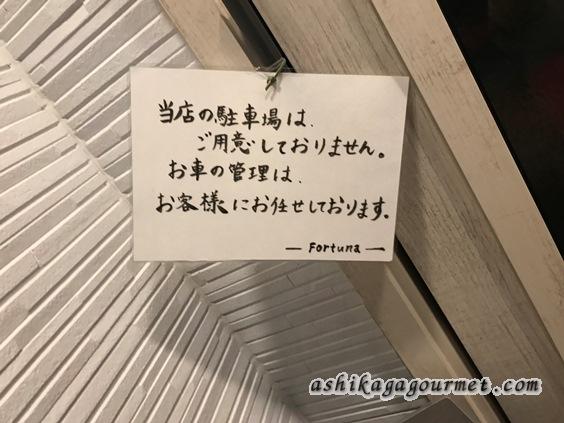 当店の駐車場は、
ご用意しておりません。
お車の管理は、
お客様にお任せしております。
— Fortuna —
ashikagagourmet.com